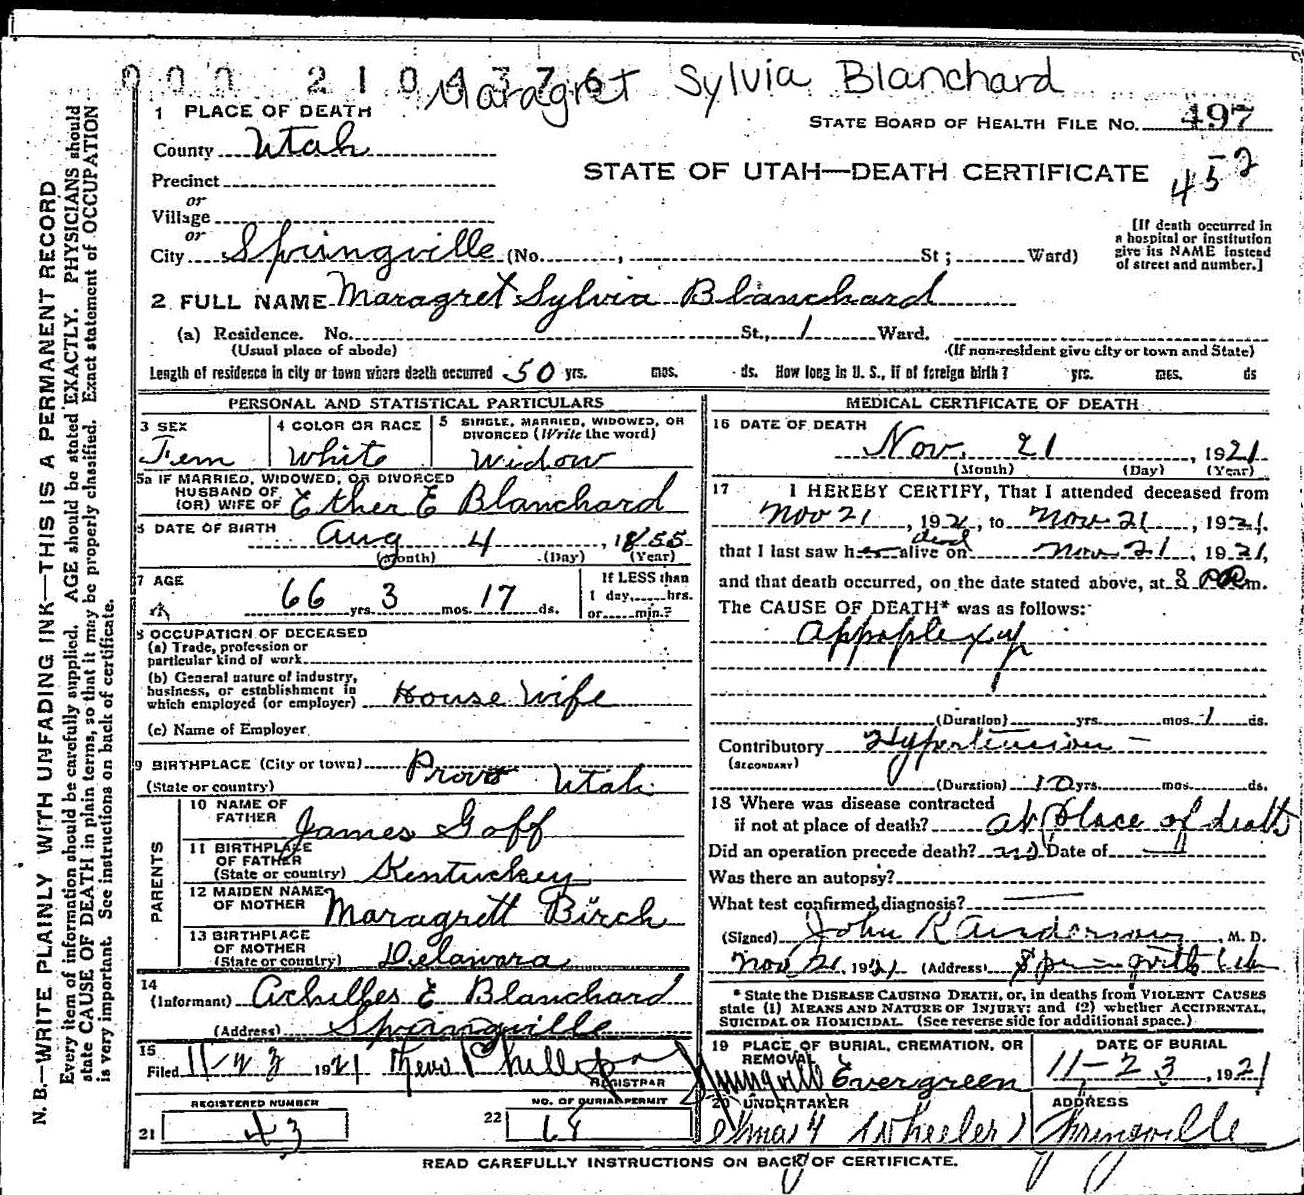 000 2104376
Maragret Sylvia Blanchard
STATE BOARD OF HEALTH FILE NO. 497
STATE OF UTAH—DEATH CERTIFICATE
452
N. B.—WRITE PLAINLY WITH UNFADING INK—THIS IS A PERMANENT RECORD
Every item of information should be carefully supplied. AGE should be stated EXACTLY. PHYSICIANS should
state CAUSE OF DEATH in plain terms, so that it may be properly classified. Exact statement of OCCUPATION
is very important. See instructions on back of certificate.
1 PLACE OF DEATH
County Utah
Precinct
or
Village
or
City Springville (No. , St; Ward)
[If death occurred in
a hospital or institution
give its NAME instead
of street and number.]
2 FULL NAME Maragret Sylvia Blanchard
(a) Residence. No. St., 1 Ward.
(Usual place of abode) (If non-resident give city or town and State)
Length of residence in city or town where death occurred 50 yrs. mos. ds. How long in U. S., if of foreign birth? yrs. mos. ds
PERSONAL AND STATISTICAL PARTICULARS
3 SEX
Fem
4 COLOR OR RACE
White
5 SINGLE, MARRIED, WIDOWED, OR
DIVORCED (Write the word)
Widow
5a IF MARRIED, WIDOWED, OR DIVORCED
HUSBAND OF
(OR) WIFE OF Ether E Blanchard
6 DATE OF BIRTH
Aug 4, 1855
(Month) (Day) (Year)
7 AGE
66 yrs. 3 mos. 17 ds.
If LESS than
1 day, hrs.
or min.?
8 OCCUPATION OF DECEASED
(a) Trade, profession or
particular kind of work
(b) General nature of industry,
business, or establishment in
which employed (or employer) House Wife
(c) Name of Employer
9 BIRTHPLACE (City or town) Provo Utah
(State or country)
PARENTS
10 NAME OF
FATHER James Goff
11 BIRTHPLACE
OF FATHER
(State or country) Kentuckey
12 MAIDEN NAME
OF MOTHER Maragrett Birch
13 BIRTHPLACE
OF MOTHER
(State or country) Delawara
14
(Informant) Achilles E Blanchard
(Address) Springville
15
Filed 11-23 1921
REGISTRAR
REGISTERED NUMBER
21 43
NO. OF BURIAL PERMIT
22 64
MEDICAL CERTIFICATE OF DEATH
16 DATE OF DEATH
Nov. 21, 1921
(Month) (Day) (Year)
17 I HEREBY CERTIFY, That I attended deceased from
Nov 21, 192 , to Nov 21, 1921,
dead
that I last saw her alive on Nov 21, 1921,
and that death occurred, on the date stated above, at 8 P m.
The CAUSE OF DEATH* was as follows:
Appoplexy
(Duration) yrs. mos. 1 ds.
Contributory Hypertension
(SECONDARY)
(Duration) 10 yrs. mos. ds.
18 Where was disease contracted
if not at place of death? at place of death
Did an operation precede death? no Date of
Was there an autopsy?
What test confirmed diagnosis?
(Signed) John R Anderson, M. D.
Nov 21, 1921 (Address) Springville Utah
* State the DISEASE CAUSING DEATH, or, in deaths from VIOLENT CAUSES
state (1) MEANS AND NATURE OF INJURY; and (2) whether ACCIDENTAL,
SUICIDAL OR HOMICIDAL. (See reverse side for additional space.)
19 PLACE OF BURIAL, CREMATION, OR
REMOVAL
Springville Evergreen
DATE OF BURIAL
11-23, 1921
20 UNDERTAKER
Wheeler
ADDRESS
Springville
READ CAREFULLY INSTRUCTIONS ON BACK OF CERTIFICATE.